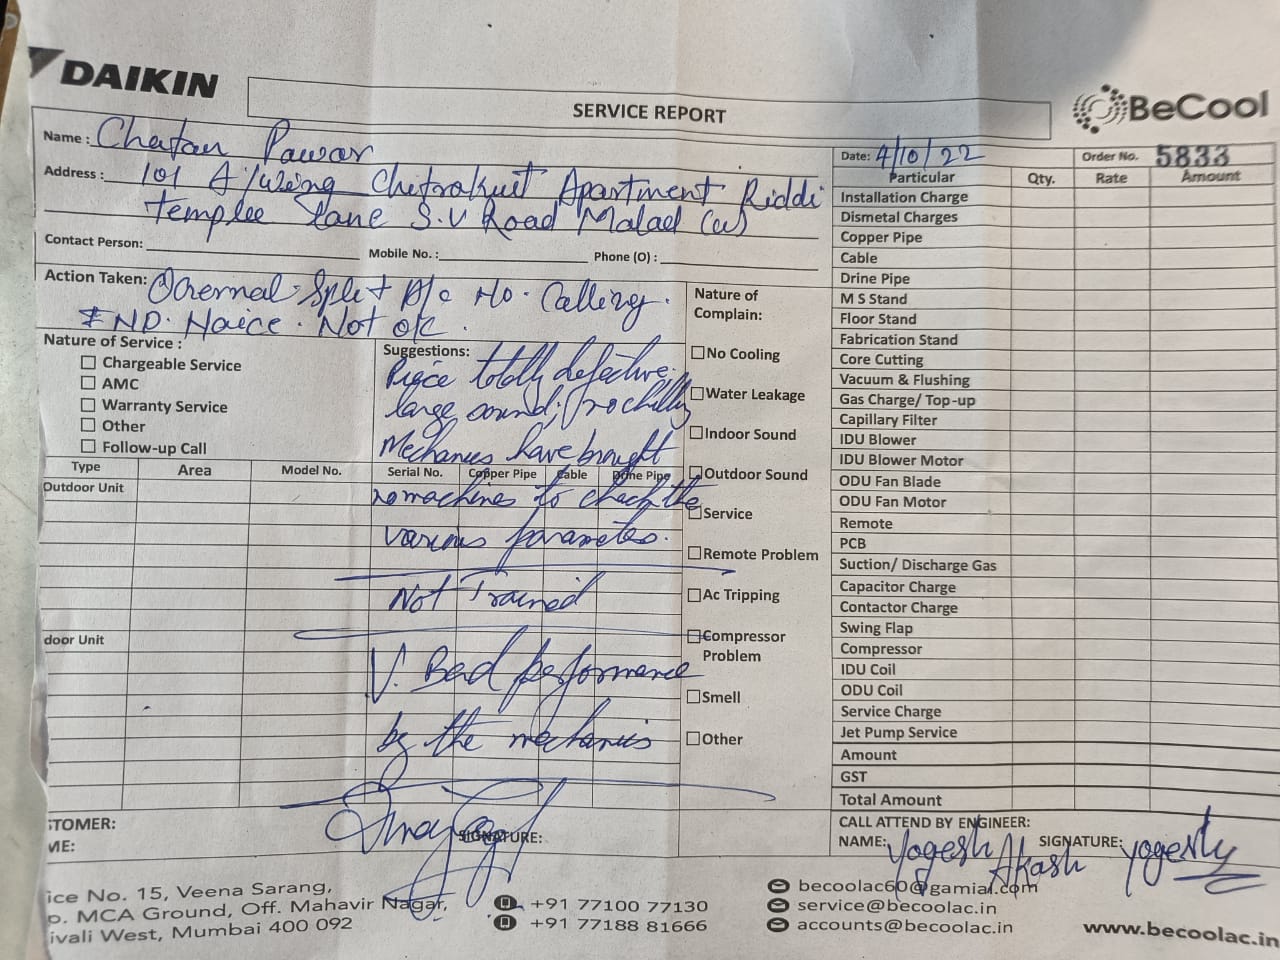 DAIKIN
SERVICE REPORT
BeCool
Name : Chatan Pawar
Address : 101 A/wing Chitrakuit Apartment Riddi
Templee lane S.V Road Malad (w)
Contact Person: Mobile No. : Phone (O) :
Date: 4/10/22 Order No. 5833
Particular Qty. Rate Amount
Installation Charge
Dismetal Charges
Copper Pipe
Cable
Drine Pipe
M S Stand
Floor Stand
Fabrication Stand
Core Cutting
Vacuum & Flushing
Gas Charge/ Top-up
Capillary Filter
IDU Blower
IDU Blower Motor
ODU Fan Blade
ODU Fan Motor
Remote
PCB
Suction/ Discharge Gas
Capacitor Charge
Contactor Charge
Swing Flap
Compressor
IDU Coil
ODU Coil
Service Charge
Jet Pump Service
Amount
GST
Total Amount
Action Taken: Split A/c No. Calling.
IND. Noice. Not ok.
Nature of Service :
Chargeable Service
AMC
Warranty Service
Other
Follow-up Call
Suggestions:
Piece totally defective.
large sound, no chilly
Mechanics have brought
no machines to check the
various parametes.
Not Trained
V. Bad performance
by the mechanics
Nature of
Complain:
No Cooling
Water Leakage
Indoor Sound
Outdoor Sound
Service
Remote Problem
Ac Tripping
Compressor
Problem
Smell
Other
Type Area Model No. Serial No. Copper Pipe Cable Drine Pipe
Outdoor Unit
door Unit
STOMER:
ME: SIGNATURE:
CALL ATTEND BY ENGINEER:
NAME: Yogesh Akash SIGNATURE: yogesh
ice No. 15, Veena Sarang,
p. MCA Ground, Off. Mahavir Nagar,
ivali West, Mumbai 400 092
+91 77100 77130
+91 77188 81666
becoolac60@gamial.com
service@becoolac.in
accounts@becoolac.in
www.becoolac.in